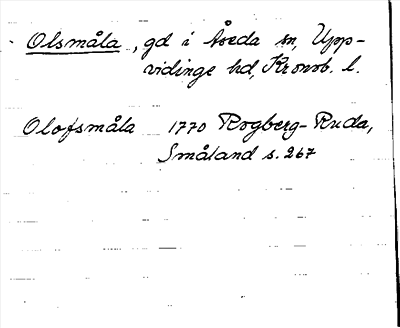 Olsmåla, gd i Åseda sn, Upp-
vidinge hd, Kronob. l.
Olofsmåla 1770 Rogberg-Ruda,
Småland s. 267